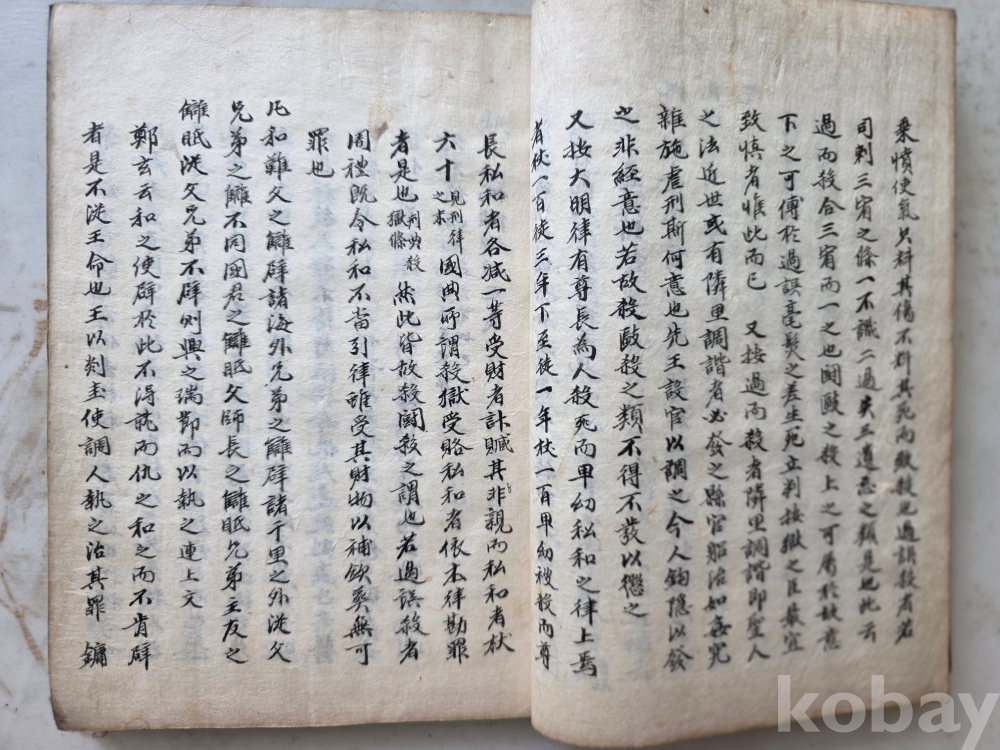 乘憤使氣只料其傷不料其死而致殺也過誤殺者若
司刺三宥之條一不識二過失三遺忘之類是也此云
過而殺合三宥而一之也鬪毆之殺上之可屬於故意
下之可傅於過誤毫髮之差生死立判按獄之臣最宜
致慎者惟此而已 又按過而殺者隣里調諧卽聖人
之法近世或有隣里調諧者必發之縣官軀治如姦宄
雜施虐刑斯何意也先王設官以調之今人鉤隱以發
之非經意也若故殺毆殺之類不得不發以懲之
又按大明律有尊長為人殺死而卑幼私和之律上焉
者杖一百徒三年下至徒一年杖一百卑幼被殺而尊
長私和者各减一等受財者計贓其非親而私和者杖
六十見刑律之末國典所謂殺獄受賂私和者依本律勘罪
者是也刑典殺獄條然此皆故殺鬪殺之謂也若過誤殺者
周禮旣令私和不當引律雖受其財物以補欽葬無可
罪也
凡和難父之讎辟諸海外兄弟之讎辟諸千里之外從父
兄弟之讎不同國君之讎眂父師長之讎眂兄弟主友之
讎眂從父兄弟不辟則與之瑞節而以執之連上文
鄭玄云和之使辟於此不得就而仇之和之而不肯辟
者是不從王命也王以剡圭使調人執之治其罪 鏞
kobay